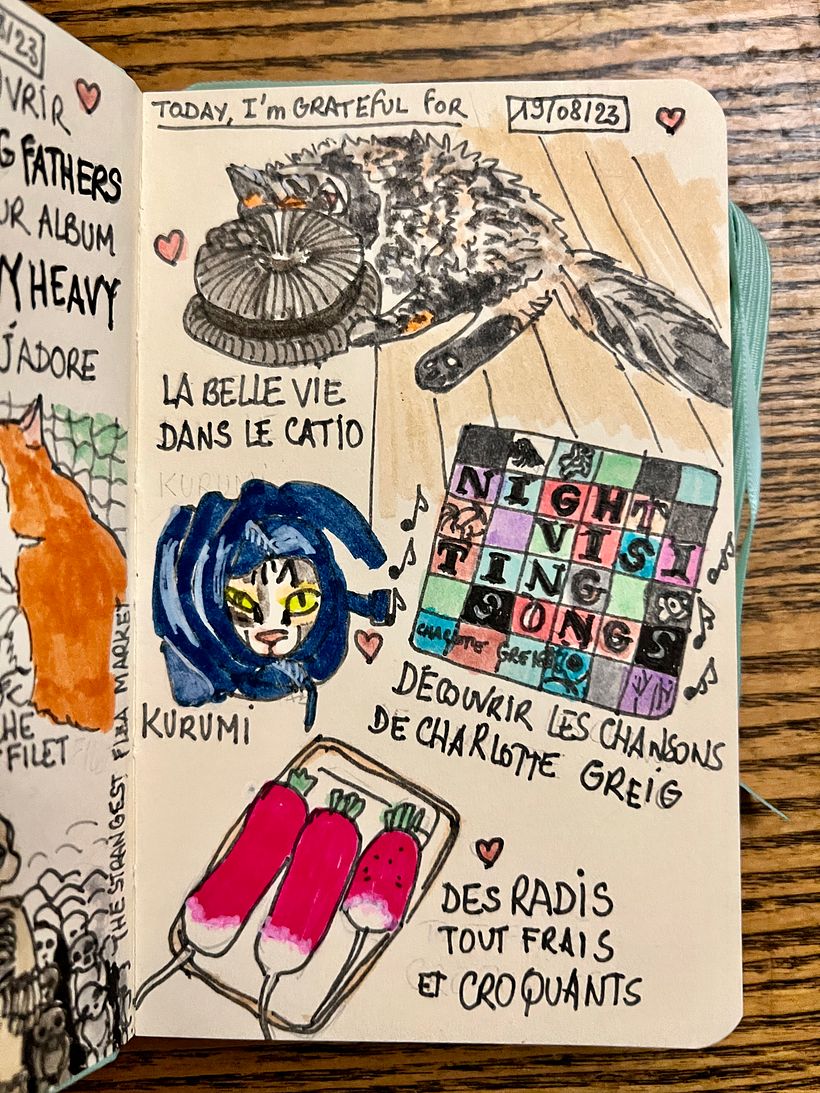 8/23
VRIR
G FATHERS
UR ALBUM
Y HEAVY
J'ADORE
HE
FILET
THE STRANGEST FLEA MARKET
TODAY, I'm GRATEFUL FOR
19/08/23
LA BELLE VIE
DANS LE CATIO
KURUMI
KURUMI
NIGHT
VISI
TING
SONGS
CHARLOTTE GREIG
DÉCOUVRIR LES CHANSONS
DE CHARLOTTE GREIG
DES RADIS
TOUT FRAIS
ET CROQUANTS